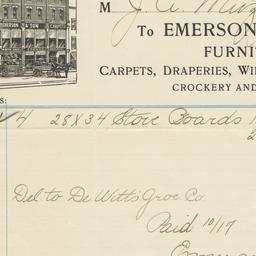 M J. A.
To EMERSON
FURNI
CARPETS, DRAPERIES, WI
CROCKERY AND
S:
4 28X34 Stove Boards 1
2
Del to De Witts Groc Co
Paid 10/17